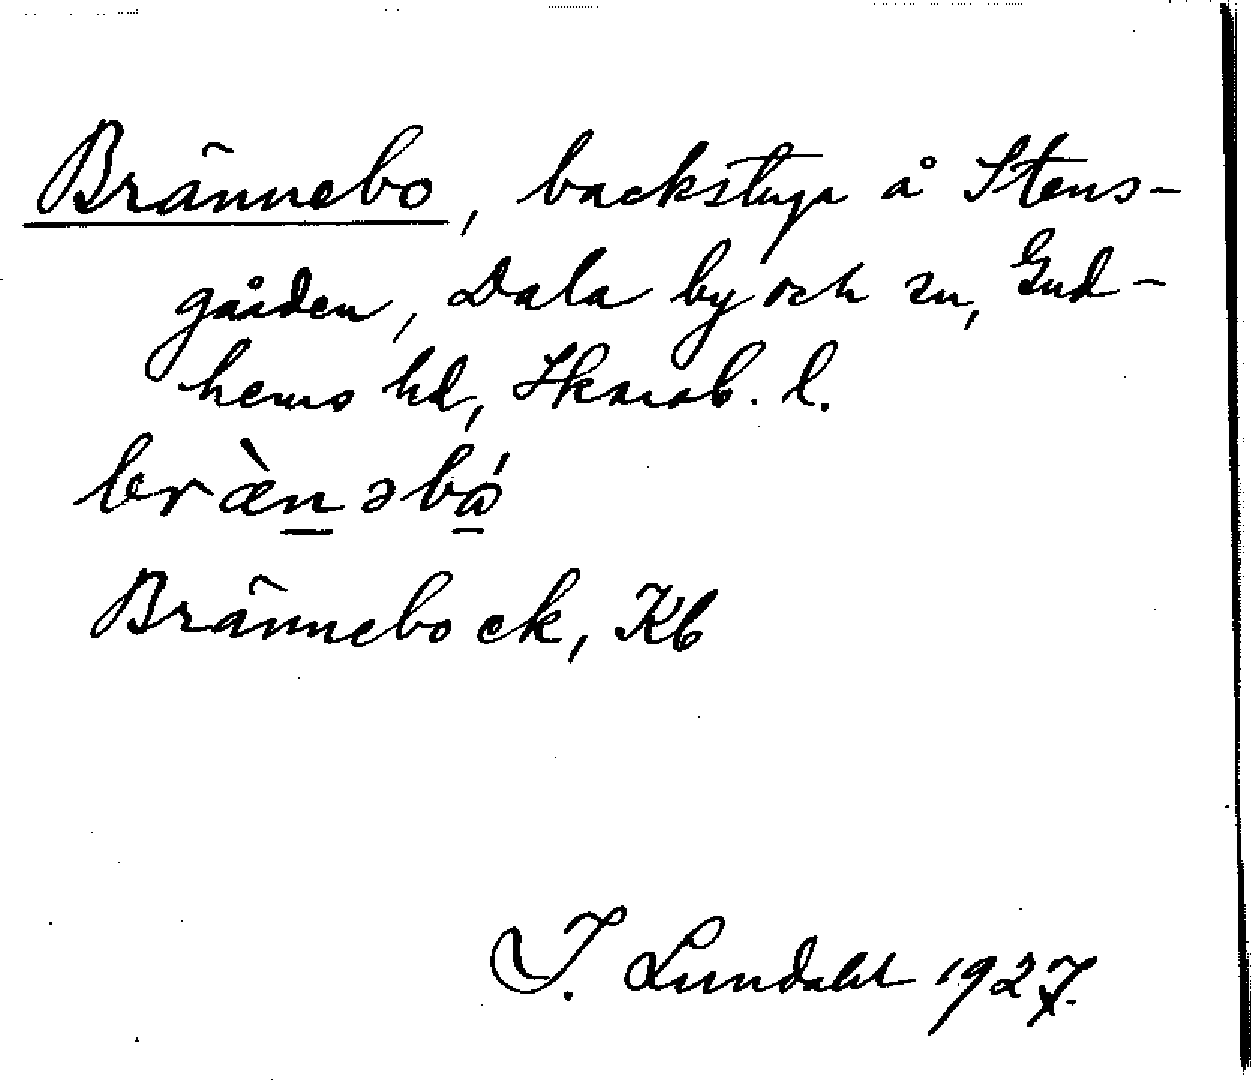 Brännebo, backstuga å Stens-
gården, Dala by och sn, Gud-
hems hd, Skarab. l.
bræ̀n̲əbá̲
Brännebo ek, Kb
I. Lundahl 1927.